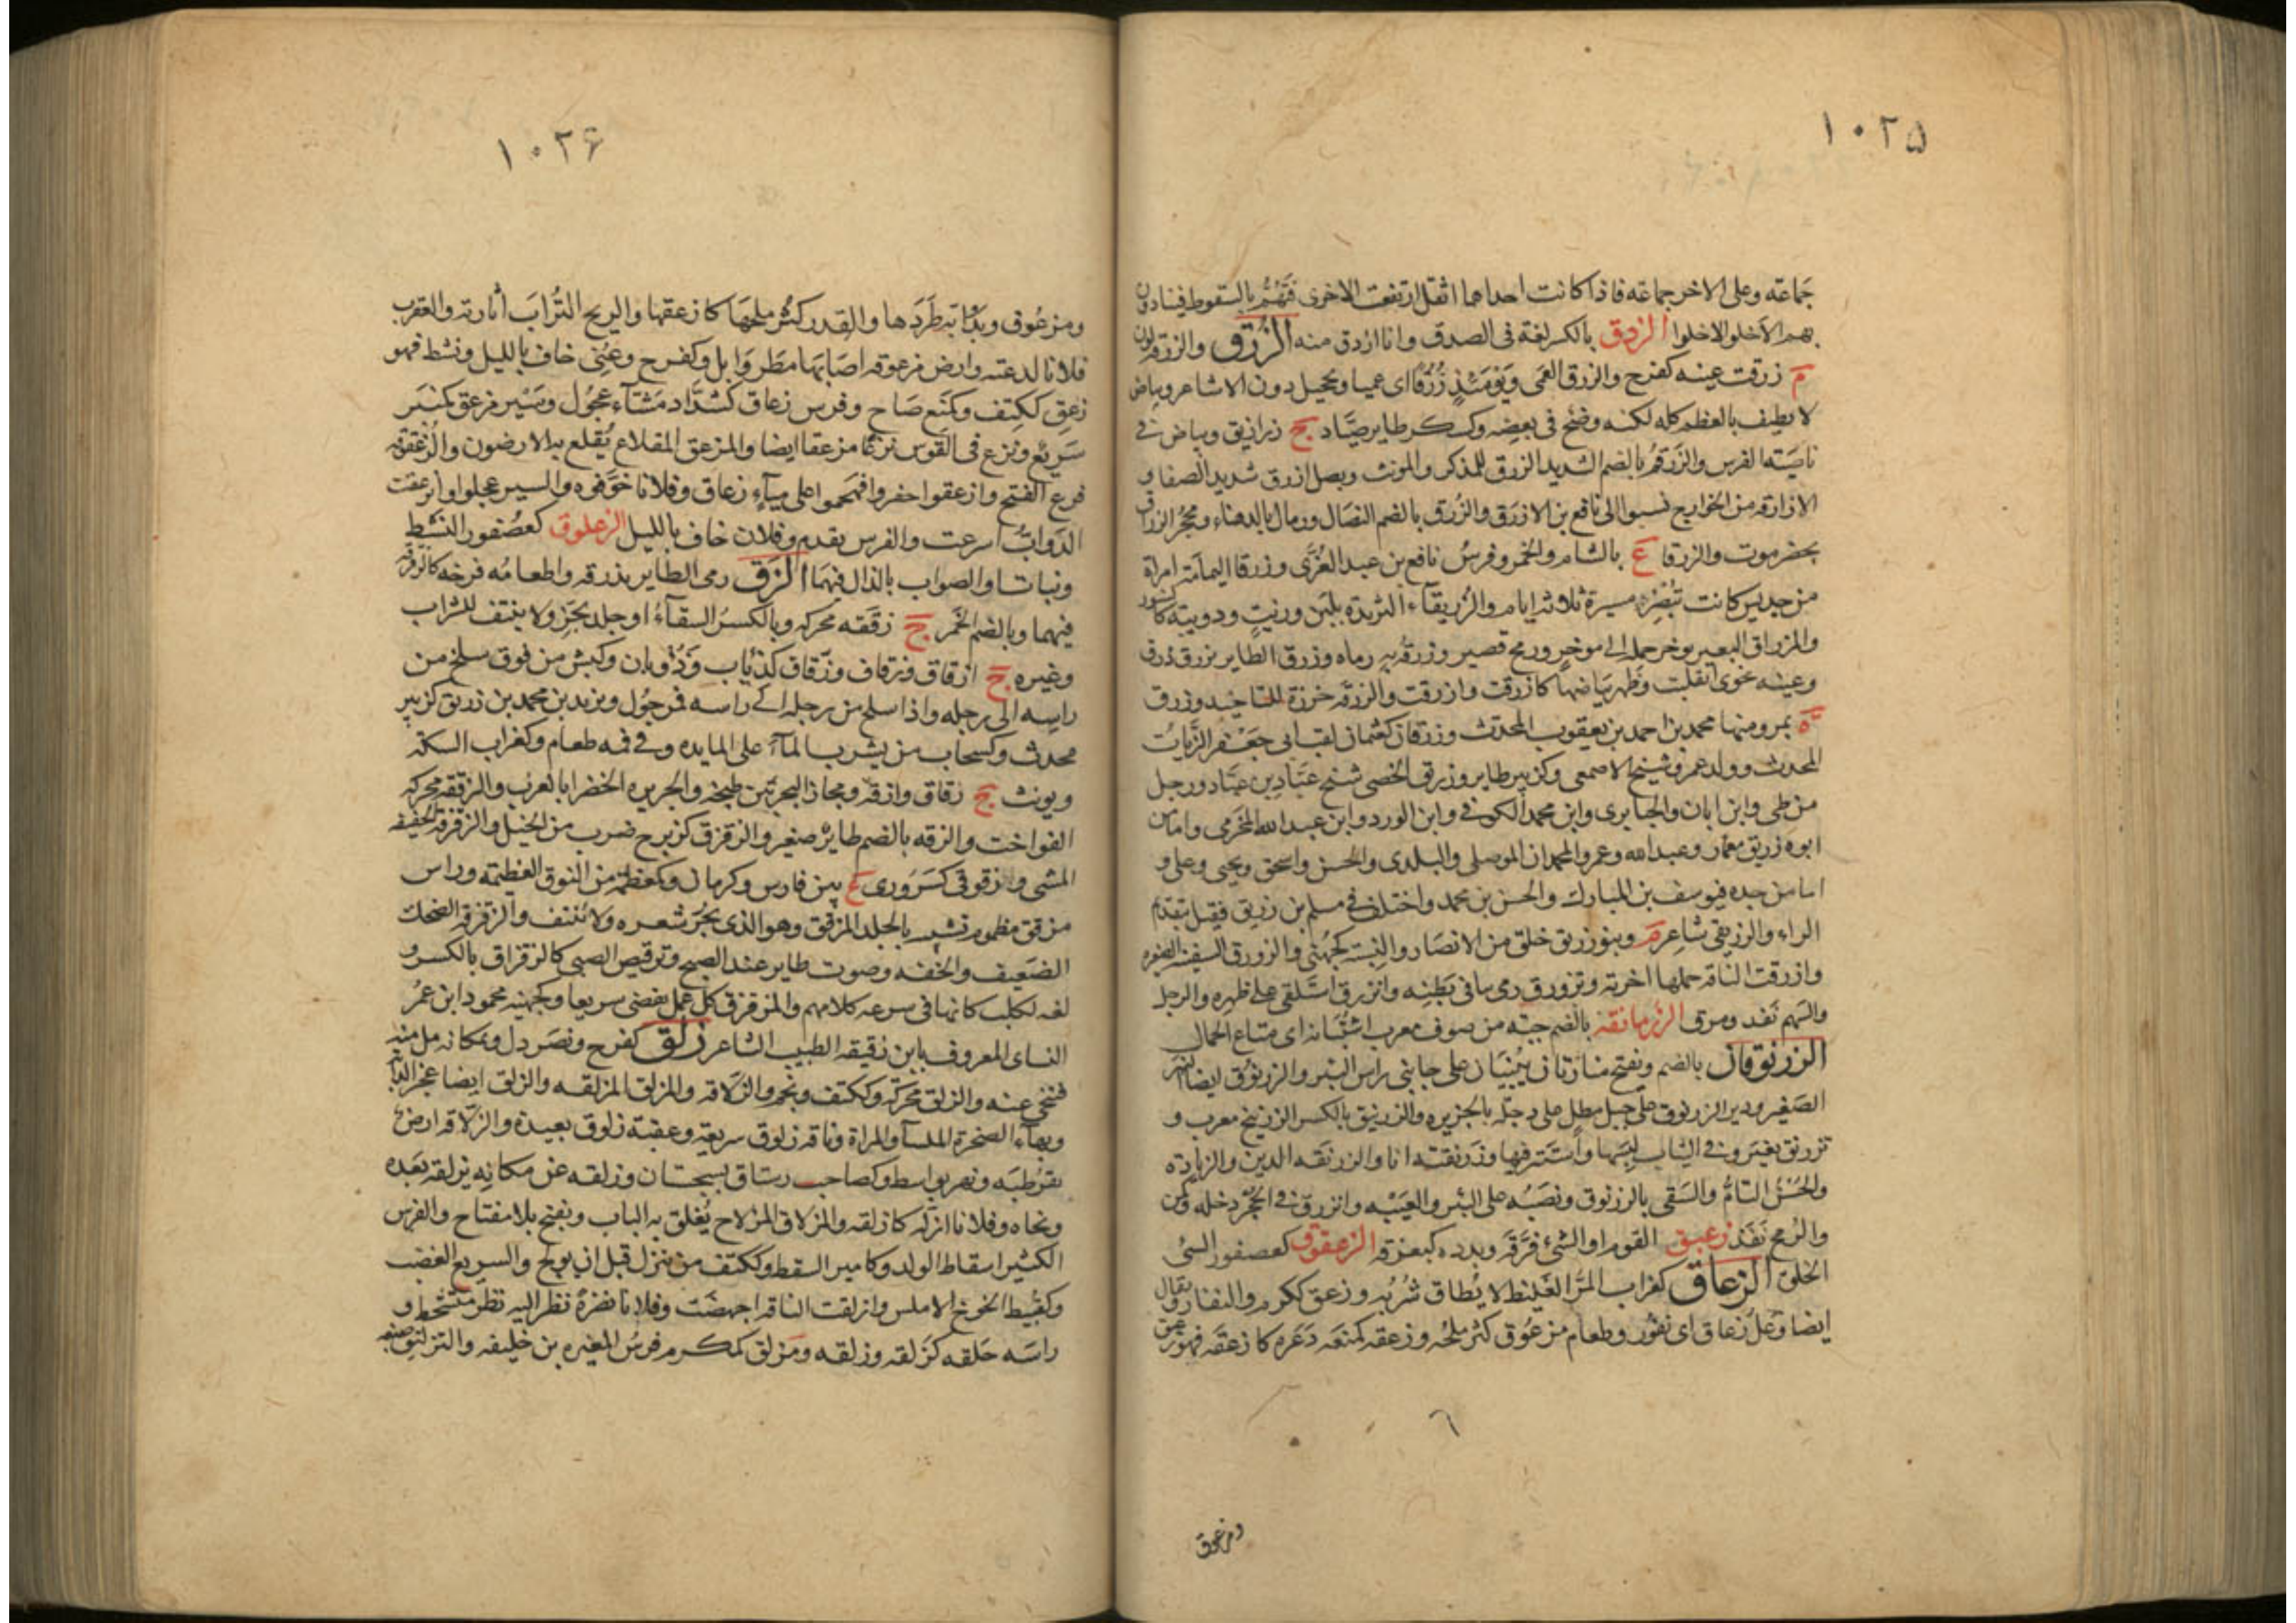 ١٠٢۵
جَماعة وعلى الاخر جماعة فاذا كانت احداهما اثقل ارتفعت الاخرى فتَهُمُّ بالسقوط فينادون
بهم الاخلو الاخلوا الزدق بالكسر لغة فى الصدق وانا ازدق منه الزَرَق والزرقة لون
م زرقت عينه كفرح والزرق العَمى ويَوْمَئِذٍ زُرْقًا اى عميا وتحجيل دون الاشاعر وبياض
لا يطيف بالعظم كله لكنه وضَح فى بعضِه وكسكر طاير صيَّاد ج زراريق وبياض فى
ناصيَته الفرس والزُرقُم بالضم الشديد الزرق للمذكر والمونث وبصل ازرق شديد الصفا و
الازارقه من الخوارج نسبوا الى نافع بن الازرَق والزُرق بالضم النصَال ورمال بالدهناء ومحجَرُ الزرقان
بحضرموت والزرقا ع بالشام والخمر وفرسُ نافع بن عبد العُزَّى وزرقا اليمامَة امراة
من جديس كانت تُبْصِرُ مسيرة ثلاثه ايام والزُرَيقَآء الثريدة بلبَن وزيتٍ ودويبّة كالسنور
والمزراق البعير يوخر حمله الى موخرٍ ورمح قصير وزرقه به رماه وزرق الطاير يزرق ذرق
وعينه نحوى انقلبت وظهر بيَاضها كازرقت وازرقت والزرقه خرزة للتاخيذ وزرق
ة بمرو منها محمد بن احمد بن يعقوب المحدث وزرقان كعثمان لقب ابى جَعْفر الزَيّات
المحدث ووالد عمرو شيخ الاصمعى وكزبير طاير وزريق الخصى شيخ عبَّاد بن عبَّاد ورجل
من طى وابن ابان والجبايرى وابن محمد الكوفى وابن الورد وابن عبد الله المخرمى واما من
ابوه زريق فعمار وعبد الله وعمرو المحمدان الموصلى والبلدى والحسن واسحق ويحيى وعلى و
اما من جده فيوسف بن المبارك والحسن بن محمد واختلف فى مسلم بن زريق فقيل بتقديم
الراء والزريقى شاعر م وبنو زريق خلق من الانصار والنِسبه كجُهَنى والزورق السفينه الصغيره
وازرقت الناقه حملها اخرته وتزورق رمى ما فى بَطنِه وانزرق استَلقى على ظهره والرجل
والسَهم نفذ ومرق الزُرمانقه بالضم جبّه من صوف معرب اشتُربانه اى متاع الجمال
الزرنوقان بالضم ويفتح منارتان يُبْنَيان على جانبى راس البئر والزرنوق ايضا النهر
الصَغير ودير الزرنوق على جبل مطل على دجلة بالجزيره والزرنيق بالكسر الزرنيخ معرب و
تزرنق تعيَّن وفى الثياب لبِسَها واستَتر فيها وزرنقته انا والزرنقه الدين والزيادة
والحُسْنُ التامُّ والسَقى بالزرنوق ونَصْبُه على البئر والعِينَة وانزرق فى الجُحْر دخله وكمن
والرُمح نَفَذ زعبق القوم او الشئ فرَّقه وبدده كبعزقه الزعقوق كعصفور السئ
الخلق الزعاق كغراب المرُّ الغَليظ لا يُطاق شُرْبُه وزعق ككرم والنفار ويقال
ايضا وَعلٌ زعاق اى نفُور وطعام مزعُوق كثر ملحُه وزعقه كمنعَه ذعَره كازعقَه فهو زعق
ومزعوق
١٠٢۶
ومزعُوق وبِدَابّته طَرَدَها والقِدر كثَّر ملحَهَا كازعقها والريح التُرابَ اثارته والعقرب
فلانا لدغته وارض مزعوقه اصَابَها مطَر وَابل وكفرح وعُنِى خاف بالليل ونشط فهو
زعِق ككتف وكمَنَع صَاح وفرس زعاق كشدَّاد مَشّآء عَجُول وسَيْر مزعق كمنبَر
سَرِيْع ونزع فى القَوس نزعًا مزعقا ايضا والمزعق المقلاع يُقلع به الارضون والزعْقوقه
فرخ القبج وازعقوا حفروا فهجموا على مآءٍ زعاق وفلانا خوَّفوه والسير عجلوا وانزعقت
الدَوابُّ اسرعت والفرس تقدم وفلان خاف بالليل الزعلوق كعصُفور النَشيط
ونبات او الصواب بالذال فيهما الزق رمى الطاير بذرقه واطعامُه فرخه كالزقزقه
فيهما وبالضم الخَمر ج زقَقه محركه وبالكسر السقآءُ او جلد يجَز ولا ينتف للشراب
وغيره ج ازقاق وزِقاق وزُقاق كذئاب وذؤبان وكبش مزقوق سلخ من
راسِه الى رجله واذا سلخ من رجله الى راسه فمرجول ويزيد بن محمد بن زريق كزبير
محدث وكسحاب من يشرب المآء على المايده وفى فمه طعام وكغراب السكّه
ويونث ج زقاق وازقه ومجاز البحر بَين طنجه والجزيره الخضرا بالغرب والزققه محركه
الفواخت والزقه بالضم طايرٌ صغير والزقزق كزبرج ضرب من الخيل والزقزقه الخفيفه
المشى وزقوقى كسَرَورى ع بين فارس وكرمان وكمعظمه من النوق العَظيمه وراس
مزقق مطموم شبه بالجلد المزقق وهو الذى يجُزّ شعره ولا يُنتف والزقزقه الضحك
الضَعيف والخفه وصوت طاير عند الصبح وترقيص الصبى كالزقزاق بالكسر و
لغه لكلب كانها فى سرعه كلامهم والمزقزق كل عمل يقضى سريعا وكجهينه محمود ابن عمُر
النساى المعروف بابن زقيقه الطبيب الشاعر زلق كفرح ونصَر ذل وبمكانه مل منه
فتنحى عنه والزلق محركه وككتف ونجم والزلاقه والمزلق المزلقه والزلق ايضا عَجز الدابه
وبهآء الصخرة الملسآء والمراة وناقه زلوق سريعة وعقبة زلوق بعيدة والزلّاقه ارض
بقرُطبَه ونهر بواسط وكصاحب رستاق بسجستان وزلقه عن مكانِه يزلقه بَعّده
ونحاه وفلانا ازلّه كازلقه والمزلاق المزلاج يُغلق به الباب ويفتح بلا مفتاح والفرس
الكثير اسقاط الولد وكامير السقط وككتف من ينزل قبل ان يولج والسريع الغضب
وكقبيط الخوخ الاملس وازلقت الناقه اجهضت وفلانا ببصَره نظر اليه نظر متسَخط و
راسَه حَلقه كزَلقه وزلقه ومُزلق كمكرم فرسُ المغيره بن خليفه والتزليق صنعه